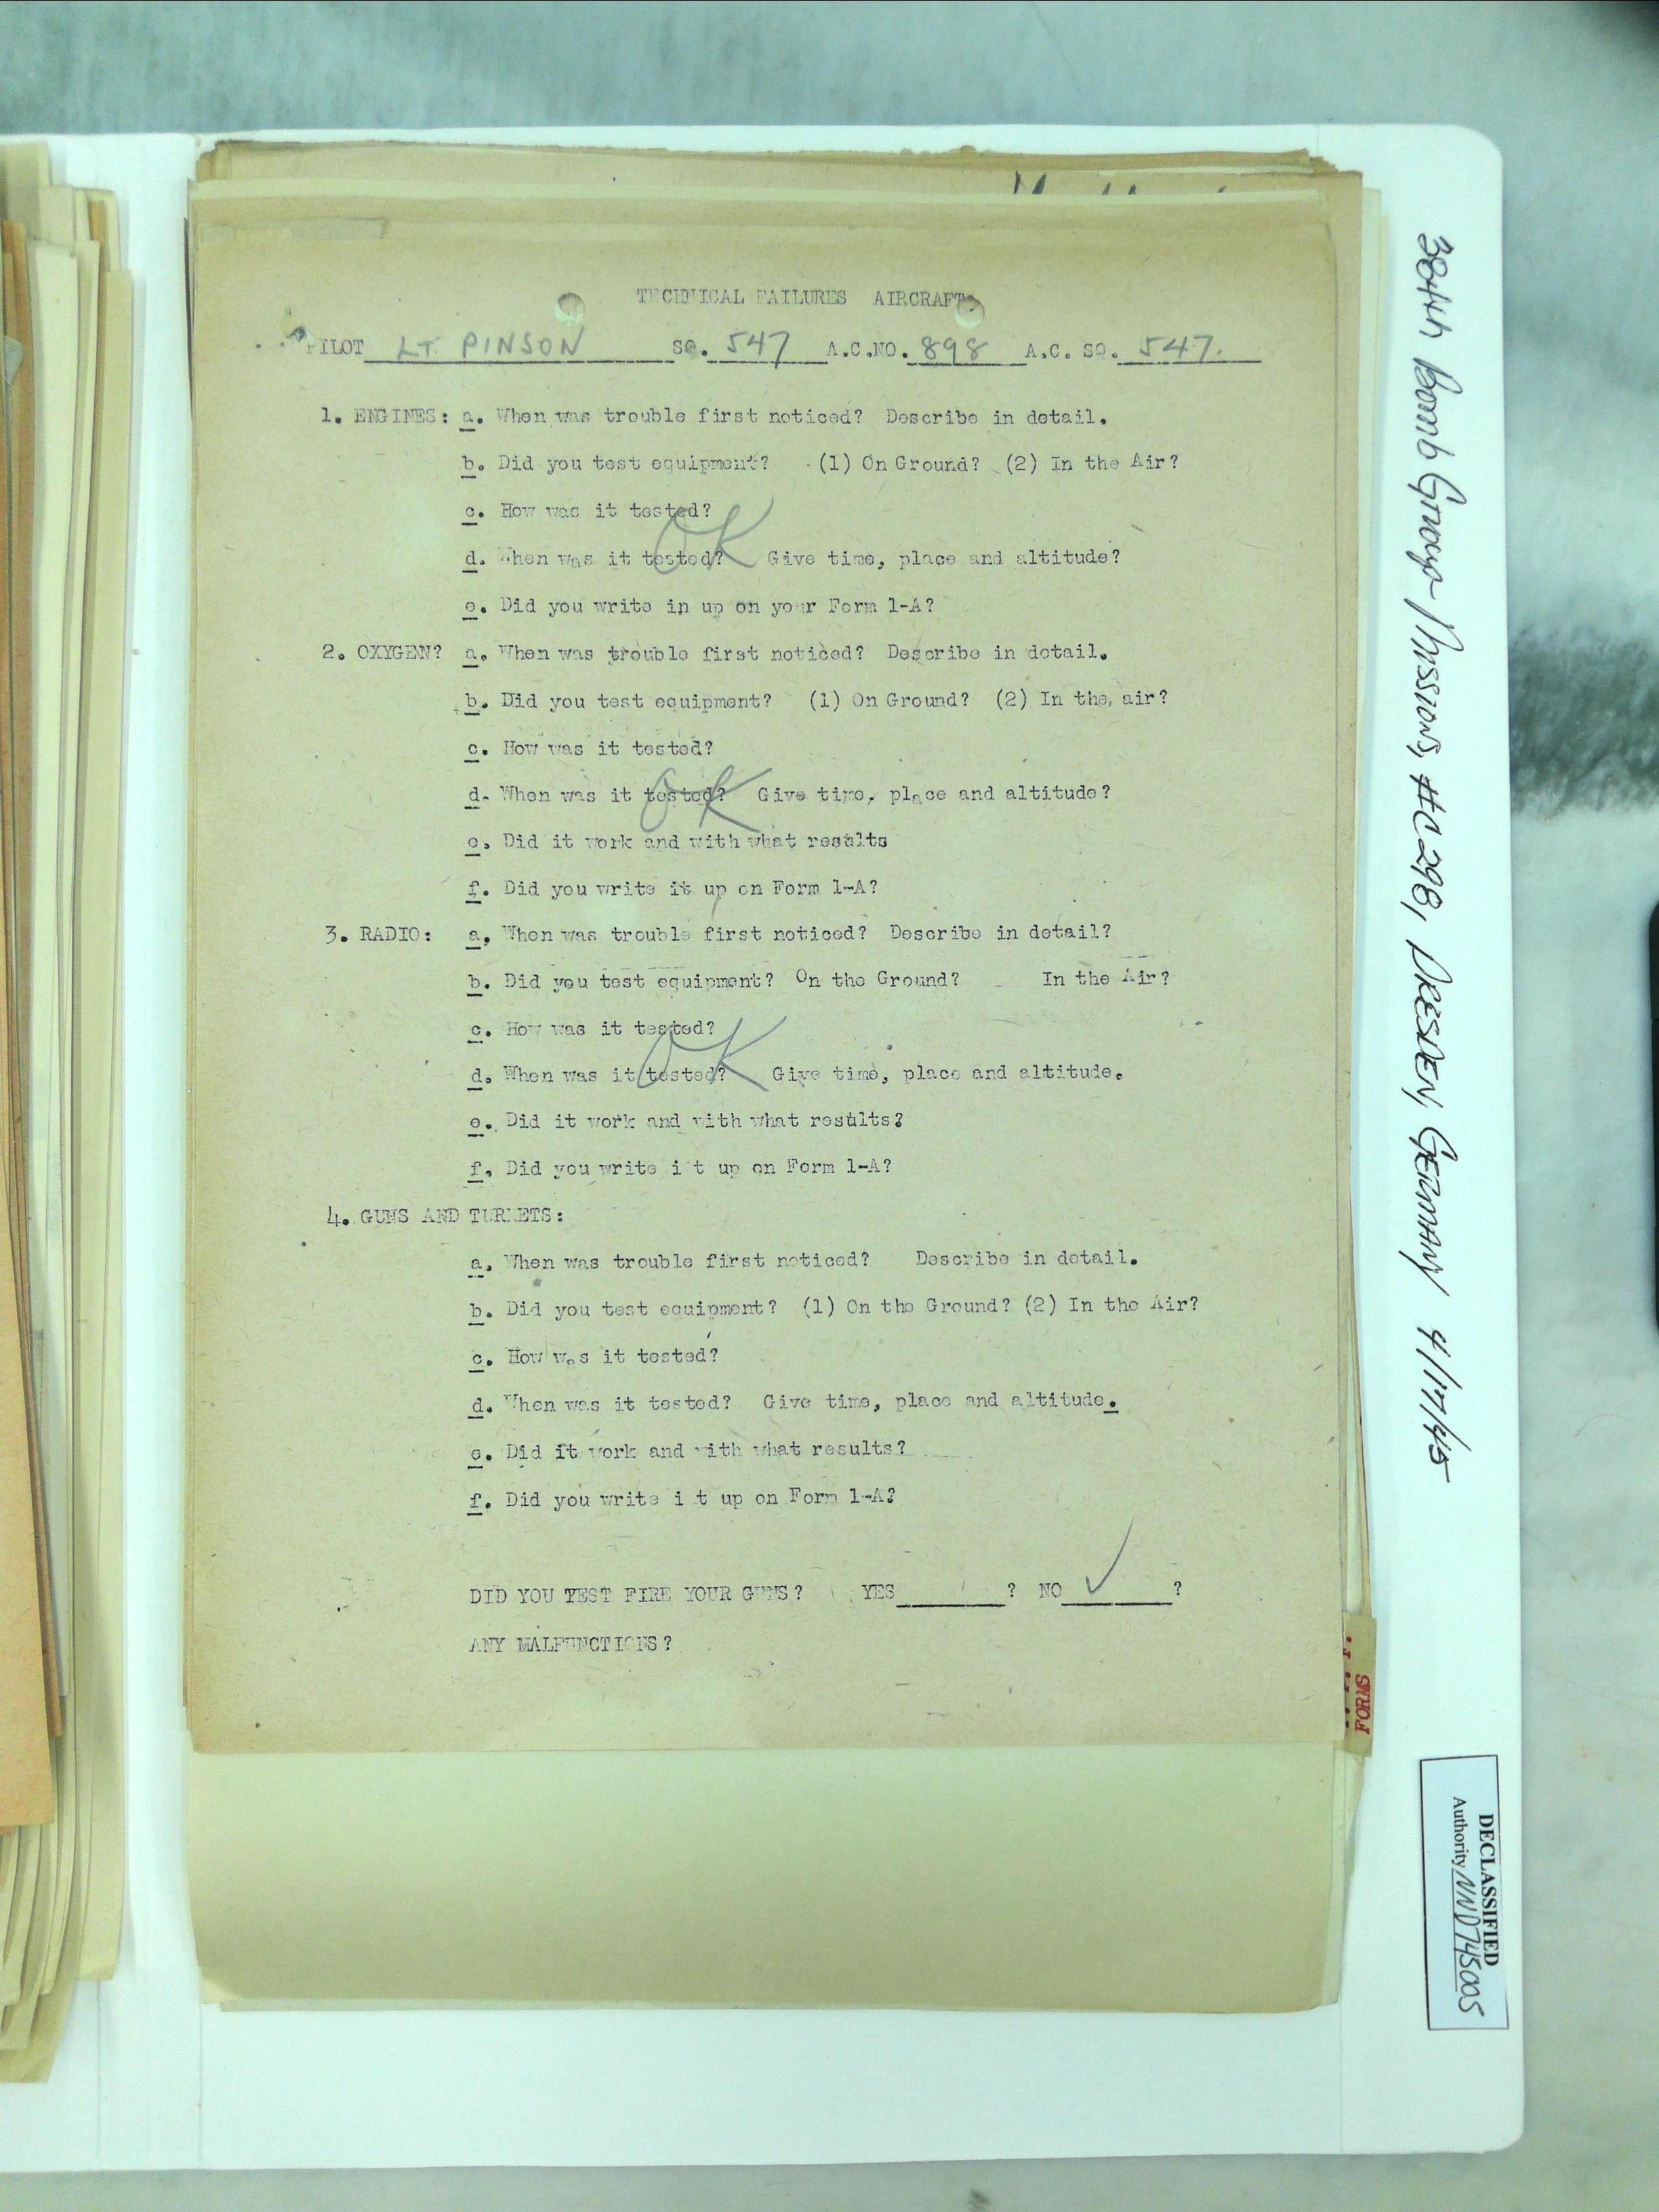 TECHNICAL FAILURES AIRCRAFT
PILOT LT. PINSON SQ. 547 A.C.NO. 898 A.C. SQ. 547.
1. ENGINES: a. When was trouble first noticed? Describe in detail.
b. Did you test equipment? (1) On Ground? (2) In the Air?
c. How was it tested?
OK
d. When was it tested? Give time, place and altitude?
e. Did you write in up on your Form 1-A?
2. OXYGEN? a. When was trouble first noticed? Describe in detail.
b. Did you test equipment? (1) On Ground? (2) In the, air?
c. How was it tested?
OK
d. When was it tested? Give time, place and altitude?
e. Did it work and with what results
f. Did you write it up on Form 1-A?
3. RADIO: a. When was trouble first noticed? Describe in detail?
b. Did you test equipment? On the Ground? In the Air?
c. How was it tested?
OK
d. When was it tested? Give time, place and altitude.
e. Did it work and with what results?
f. Did you write i t up on Form 1-A?
4. GUNS AND TURRETS:
a. When was trouble first noticed? Describe in detail.
b. Did you test equipment? (1) On the Ground? (2) In the Air?
c. How was it tested?
d. When was it tested? Give time, place and altitude.
e. Did it work and with what results?
f. Did you write i t up on Form 1-A?
DID YOU TEST FIRE YOUR GUNS? YES ? NO ✓ ?
ANY MALFUNCTIONS?
FORMS
384th Bomb Group Missions, #C298, DRESDEN, GERMANY 4/17/45
DECLASSIFIED
Authority NND745005